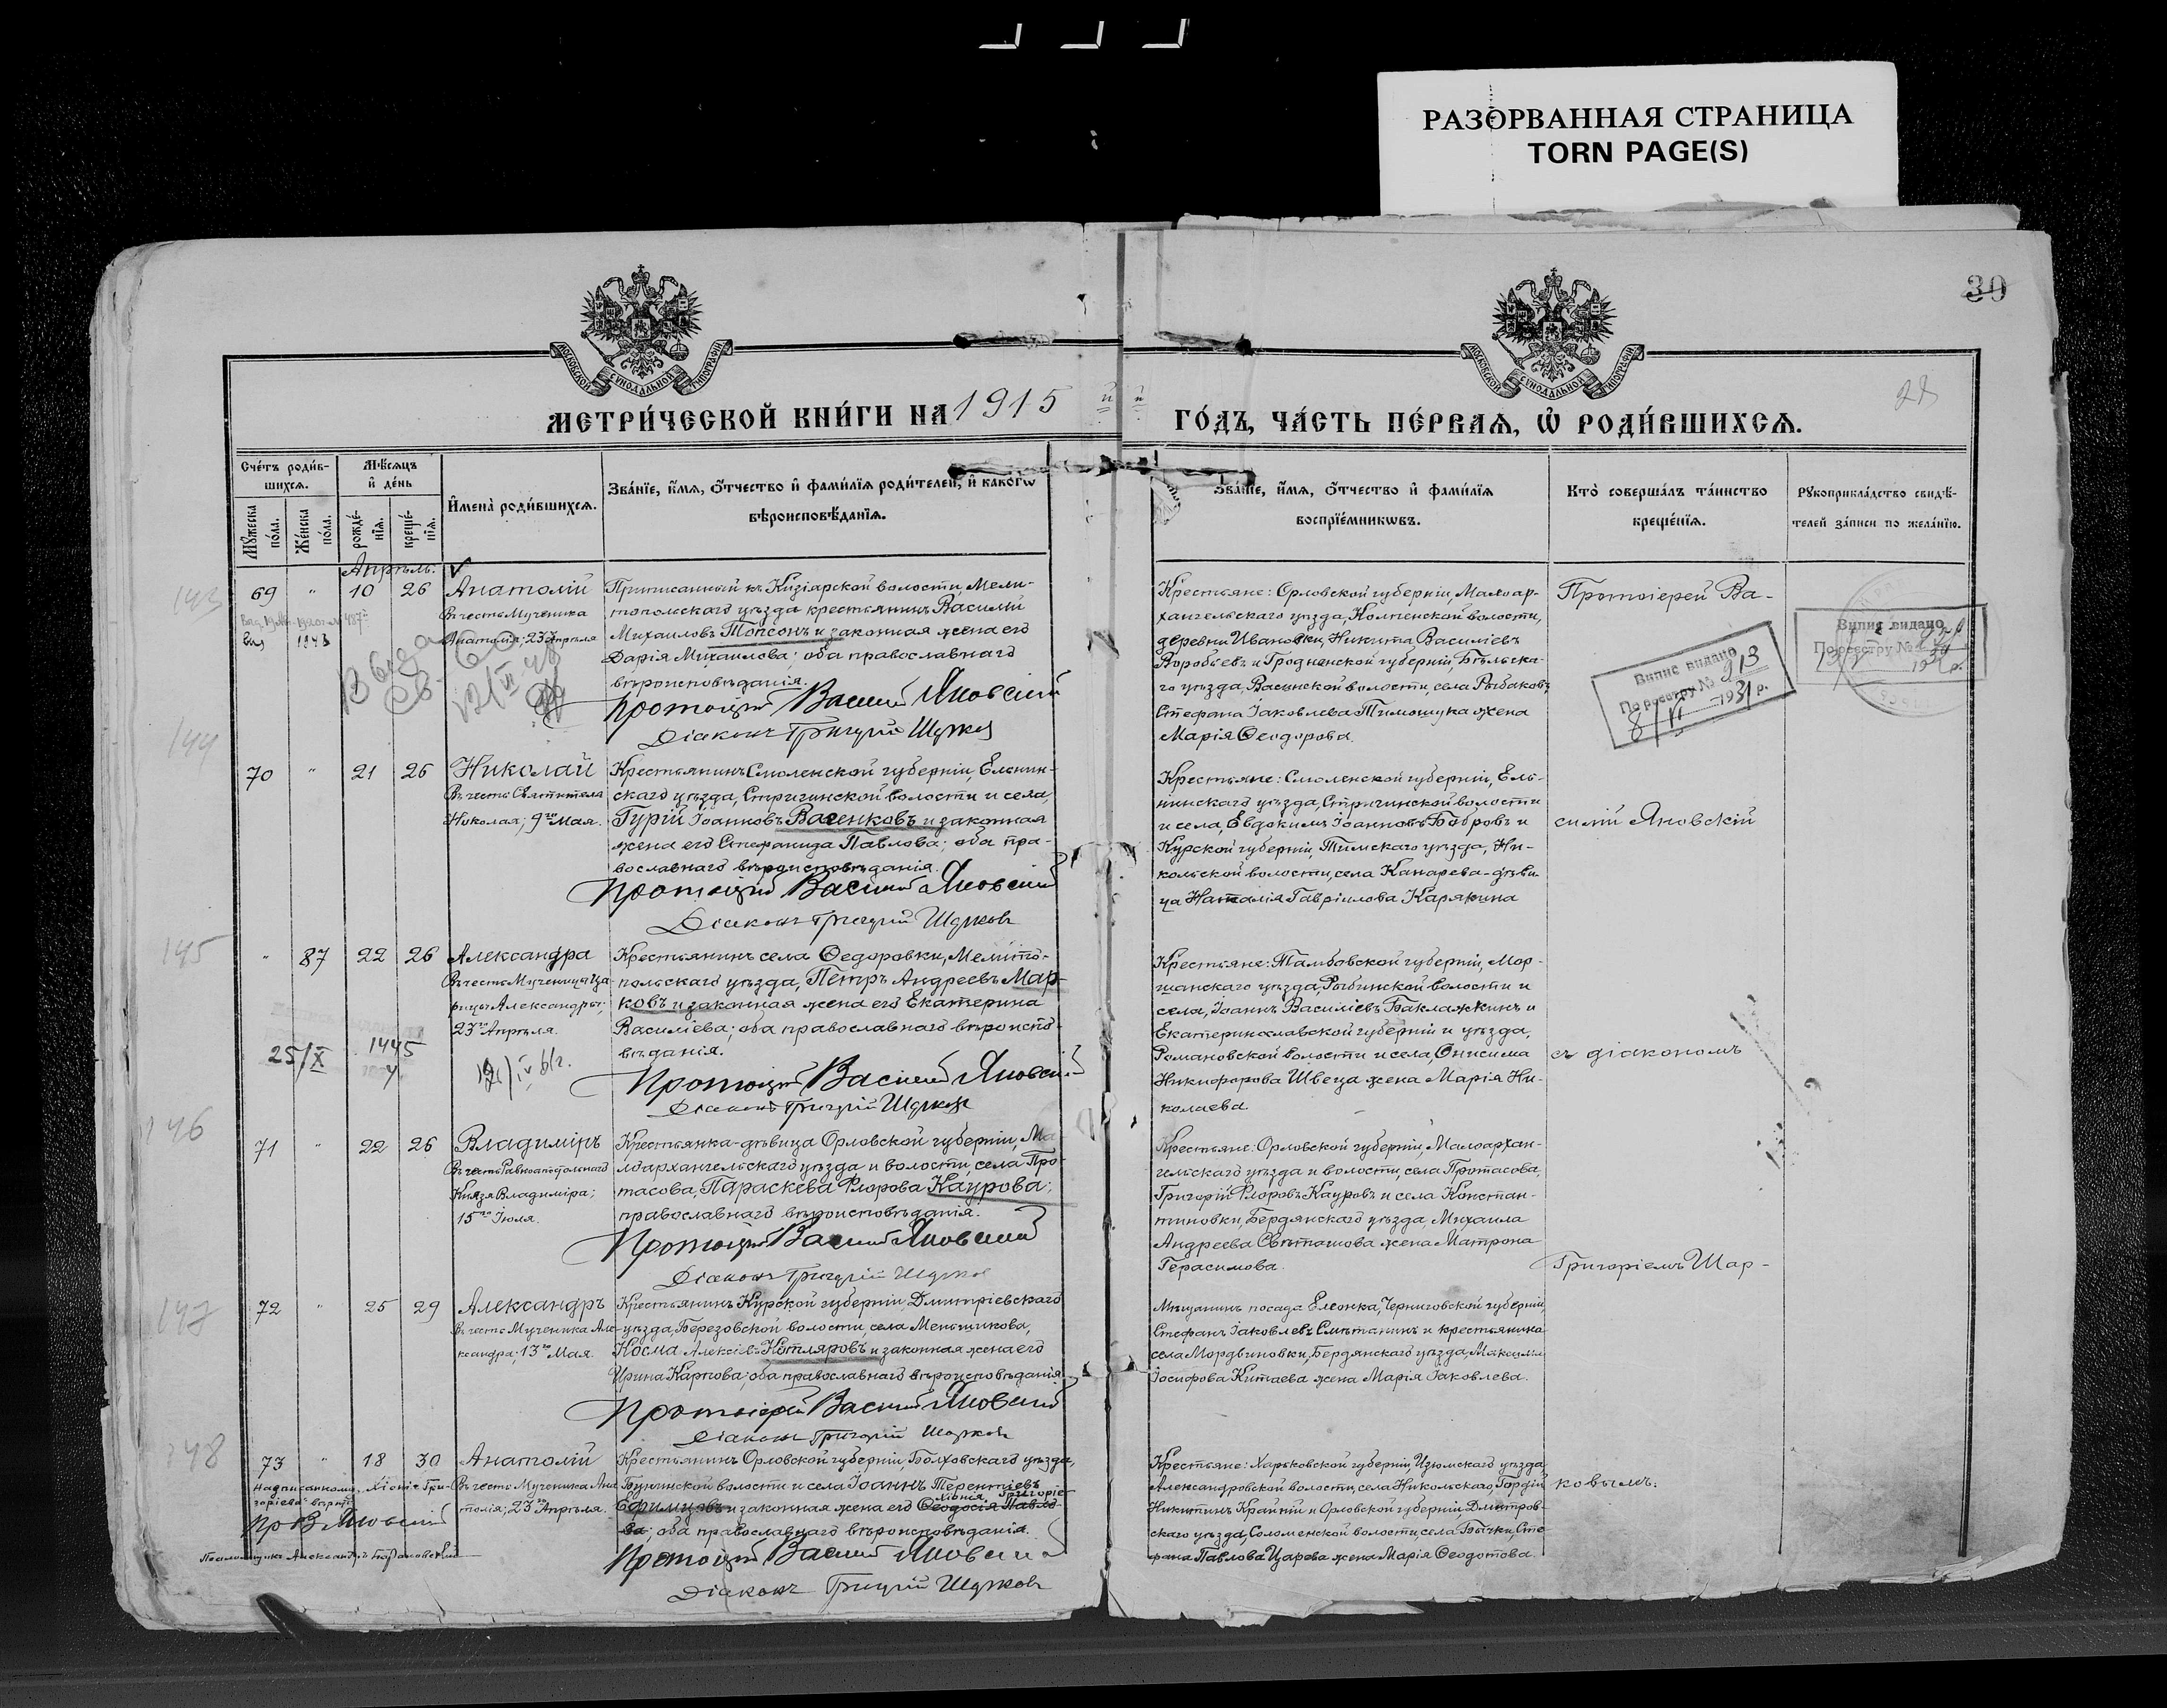 РАЗОРВАННАЯ СТРАНИЦА
TORN PAGE(S)
30
МОСКОВСКОЙ СѴНОДАЛЬНОЙ ТИПОГРАФІИ
МОСКОВСКОЙ СѴНОДАЛЬНОЙ ТИПОГРАФІИ
МЕТРИ́ЧЕСКОЙ КНИ́ГИ НА 1915
ГО́ДЪ, ЧА́СТЬ ПЕ́РВАѦ, Ѡ҆ РОДИ́ВШИХСѦ.
Сче́тъ роди́в-
шихсѧ.
Мꙋ́жеска по́ла.
Же́нска по́ла.
Мѣ́сѧцъ
и҆ де́нь
рожде́-
нїѧ.
креще́-
нїѧ.
И҆мена̀ роди́вшихсѧ.
Зва́нїе, и҆́мѧ, ѻ҆́тчество и҆ фами́лїѧ роди́телей, и҆ како́гѡ
вѣроисповѣ́данїѧ.
Зва́нїе, и҆́мѧ, ѻ҆́тчество и҆ фами́лїѧ
воспрїе́мникѡвъ.
Кто̀ соверша́лъ та́инство
креще́нїѧ.
Рꙋкоприкла́дство свидѣ́-
телей за́писи по жела́нїю.
Апрѣль.
143
69 " 10 26 Анатолій
Въ честь Мученика
Анатолія, 23 Апрѣля
1943
Приписанный къ Кизіарской волости, Мели-
топольскаго уѣзда крестьянинъ Василій
Михаиловъ Топсонъ и законная жена его
Дарія Михаилова; оба православнаго
вѣроисповѣданія.
Протоіерей Василій Яновскій
Діаконъ Григорій Шарков
Крестьяне: Орловской губерніи, Малоар-
хангельскаго уѣзда, Колпенской волости,
деревни Ивановки, Никита Василіевъ
Воробьевъ и Гродненской губерніи, Бѣльска-
го уѣзда, волости, села
Стефана Іаковлева Тимошука жена
Марія Ѳеодорова.
Протоіерей Ва-
Випис видано
По реєстру № 913
8/VI 1931 р.
Випис видано
По реєстру №
193 р.
144
70 " 21 26 Николай
Въ честь Святителя
Николая; 9го Мая.
Крестьянинъ Смоленской губерніи, Ельнин-
скаго уѣзда, Стригинской волости и села,
Гурій Іоанновъ Васенковъ и законная
жена его Стефанида Павлова; оба пра-
вославнаго вѣроисповѣданія.
Протоіерей Василій Яновскій
Діаконъ Григорій Шарковъ
Крестьяне: Смоленской губерніи, Ель-
нинскаго уѣзда, Стригинской волости
и села, Евдокимъ Іоанновъ Бобровъ и
Курской губерніи, Тимскаго уѣзда, Ни-
кольской волости, села Канарева-дѣви-
ца Наталія Гавріилова Карякина
силій Яновскій
145
" 87 22 26 Александра
Въ честь Мученицы Ца-
рицы Александры;
23го Апрѣля.
25/X 1445
Крестьянинъ села Ѳедоровки, Мелито-
польскаго уѣзда, Петръ Андреевъ Мар-
ковъ и законная жена его Екатерина
Василіева; оба православнаго вѣроиспо-
вѣданія.
Протоіерей Василій Яновскій
Діаконъ Григорій Шарков
Крестьяне: Тамбовской губерніи, Мор-
шанскаго уѣзда, Рыбинской волости и
села, Іоаннъ Василіевъ Баклажкинъ и
Екатеринославской губерніи и уѣзда,
Романовской волости и села, Онисима
Никифорова Швеца жена Марія Ни-
колаева.
съ діакономъ
146
71 " 22 26 Владиміръ
Въ честь Равноапостольнаго
Князя Владиміра;
15го Іюля.
Крестьянка-дѣвица Орловской губерніи, Ма-
лоархангельскаго уѣзда и волости, села Про-
тасова, Параскева Флорова Каурова;
православнаго вѣроисповѣданія.
Протоіерей Василій Яновскій
Діаконъ Григорій Шарков
Крестьяне: Орловской губерніи, Малоархан-
гельскаго уѣзда и волости, села Протасова,
Григорій Флоровъ Кауровъ и села Констан-
тиновки, Бердянскаго уѣзда, Михаила
Андреева Свѣташова жена Матрона
Герасимова.
Григоріемъ Шар-
147
72 " 25 29 Александръ
Въ честь Мученика Але-
ксандра; 13го Мая.
Крестьянинъ Курской губерніи, Дмитріевскаго
уѣзда, Березовской волости, села Меньшикова,
Косма Алексіевъ Котляровъ и законная жена его
Ирина Карпова; оба православнаго вѣроисповѣданія.
Протоіерей Василій Яновскій
Діаконъ Григорій Шарковъ
Мѣщанинъ посада Елеонка, Черниговской губерніи,
Стефанъ Іаковлевъ Сметанинъ и крестьянина
села Мордвиновки, Бердянскаго уѣзда, Максима
Іосифова Китаева жена Марія Іаковлева.
148
73 " 18 30 Анатолій
Въ честь Мученика Ана-
толія; 23го Апрѣля.
Надписанному Хіонія Гри-
горіева вѣрить
Пр. В. Яновскій
Псаломщикъ Александръ Барановскій
Крестьянинъ Орловской губерніи, Болховскаго уѣзда,
Бунинской волости и села Іоаннъ Терентіевъ
Хіонія Григоріе-
Ефимцовъ и законная жена его Ѳеодосія Павло-
ва; оба православнаго вѣроисповѣданія.
Протоіерей Василій Яновскій
Діаконъ Григорій Шарковъ
Крестьяне: Харьковской губерніи, Изюмскаго уѣзда,
Александровской волости, села Никольскаго, Гордій
Никитинъ Крайній и Орловской губерніи, Дмитров-
скаго уѣзда, Соломенской волости, села Бычки, Сте-
фана Павлова Царева жена Марія Ѳеодотова.
ковымъ.